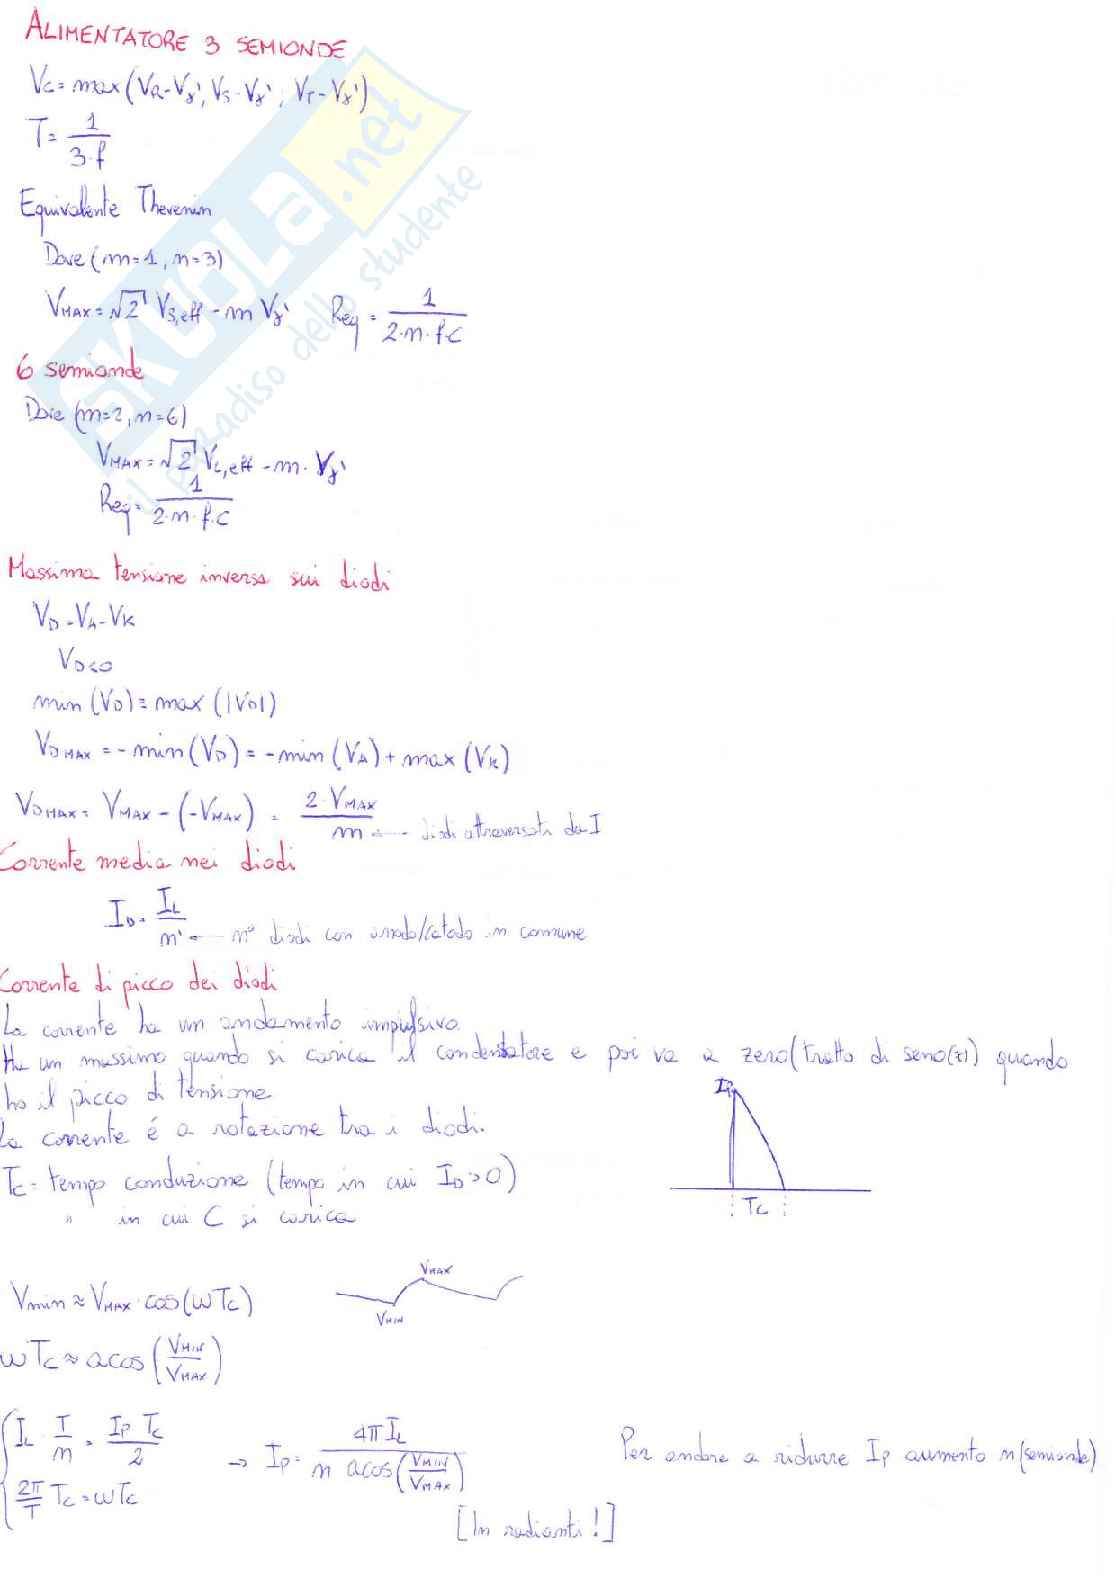 ALIMENTATORE 3 SEMIONDE
Vc = max (VR - Vγ', VS - Vγ', VT - Vγ')
T = 1/(3·f)
Equivalente Thevenin
Dove (m=1, n=3)
VMAX = √2 VS,eff - m Vγ' Req = 1/(2·n·f·C)
6 semionde
Dove (m=2, n=6)
VMAX = √2 VL,eff - m·Vγ'
Req = 1/(2·n·f·C)
Massima tensione inversa sui diodi
VD = VA - VK
VD<0
min (VD) = max (|VD|)
VDMAX = - min (VD) = - min (VA) + max (VK)
VDMAX = VMAX - (-VMAX) = 2·VMAX/m ← diodi attraversati da I
Corrente media nei diodi
ID = IL/n' ← n° diodi con anodo/catodo in comune
Corrente di picco dei diodi
La corrente ha un andamento impulsivo.
Ha un massimo quando si carica il condensatore e poi va a zero (tratto di seno(x)) quando
ho il picco di tensione
La corrente é a rotazione tra i diodi.
IP
TC
TC = tempo conduzione (tempo in cui ID>0)
" in cui C si carica
Vmin ≈ VMAX·cos(ωTC)
VMAX
VMIN
ωTC ≈ acos (VMIN/VMAX)
{ IL · T/n = IP TC/2 → IP = 4π IL/(n acos(VMIN/VMAX)) Per andare a ridurre IP aumento n (semionde)
2π/T TC = ωTC
[In radianti!]
SKUOLA.net
il paradiso dello studente